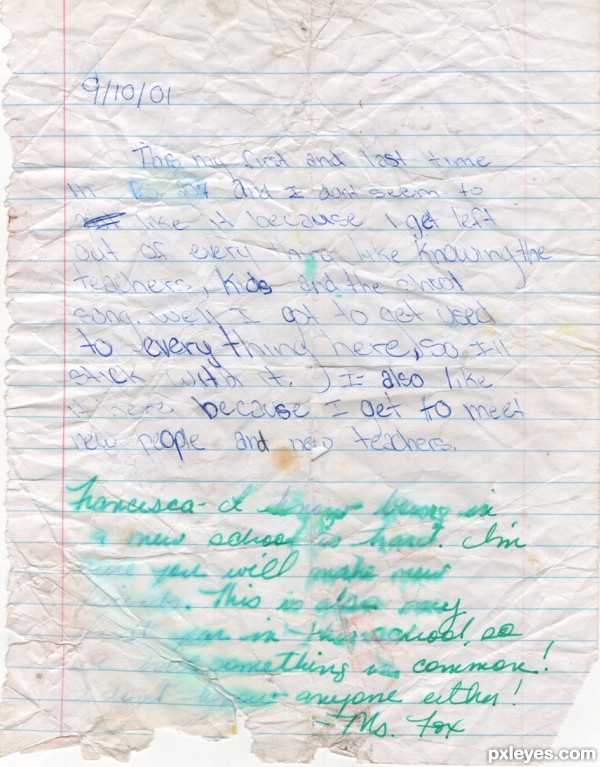 9/10/01
This my first and last time
in and I dont seem to
like it because I get left
out of every thing like knowing the
teachers, kids and the shool
song. well I got to get used
to everything here, so I'll
stick with it. I also like
it here because I get to meet
new people and new teachers.
Francesca- I know being in
a new school is hard. I'm
you will make new
This is also my
in this school, so
something in common!
I don't know anyone either!
- Ms. Fox
pxleyes.com